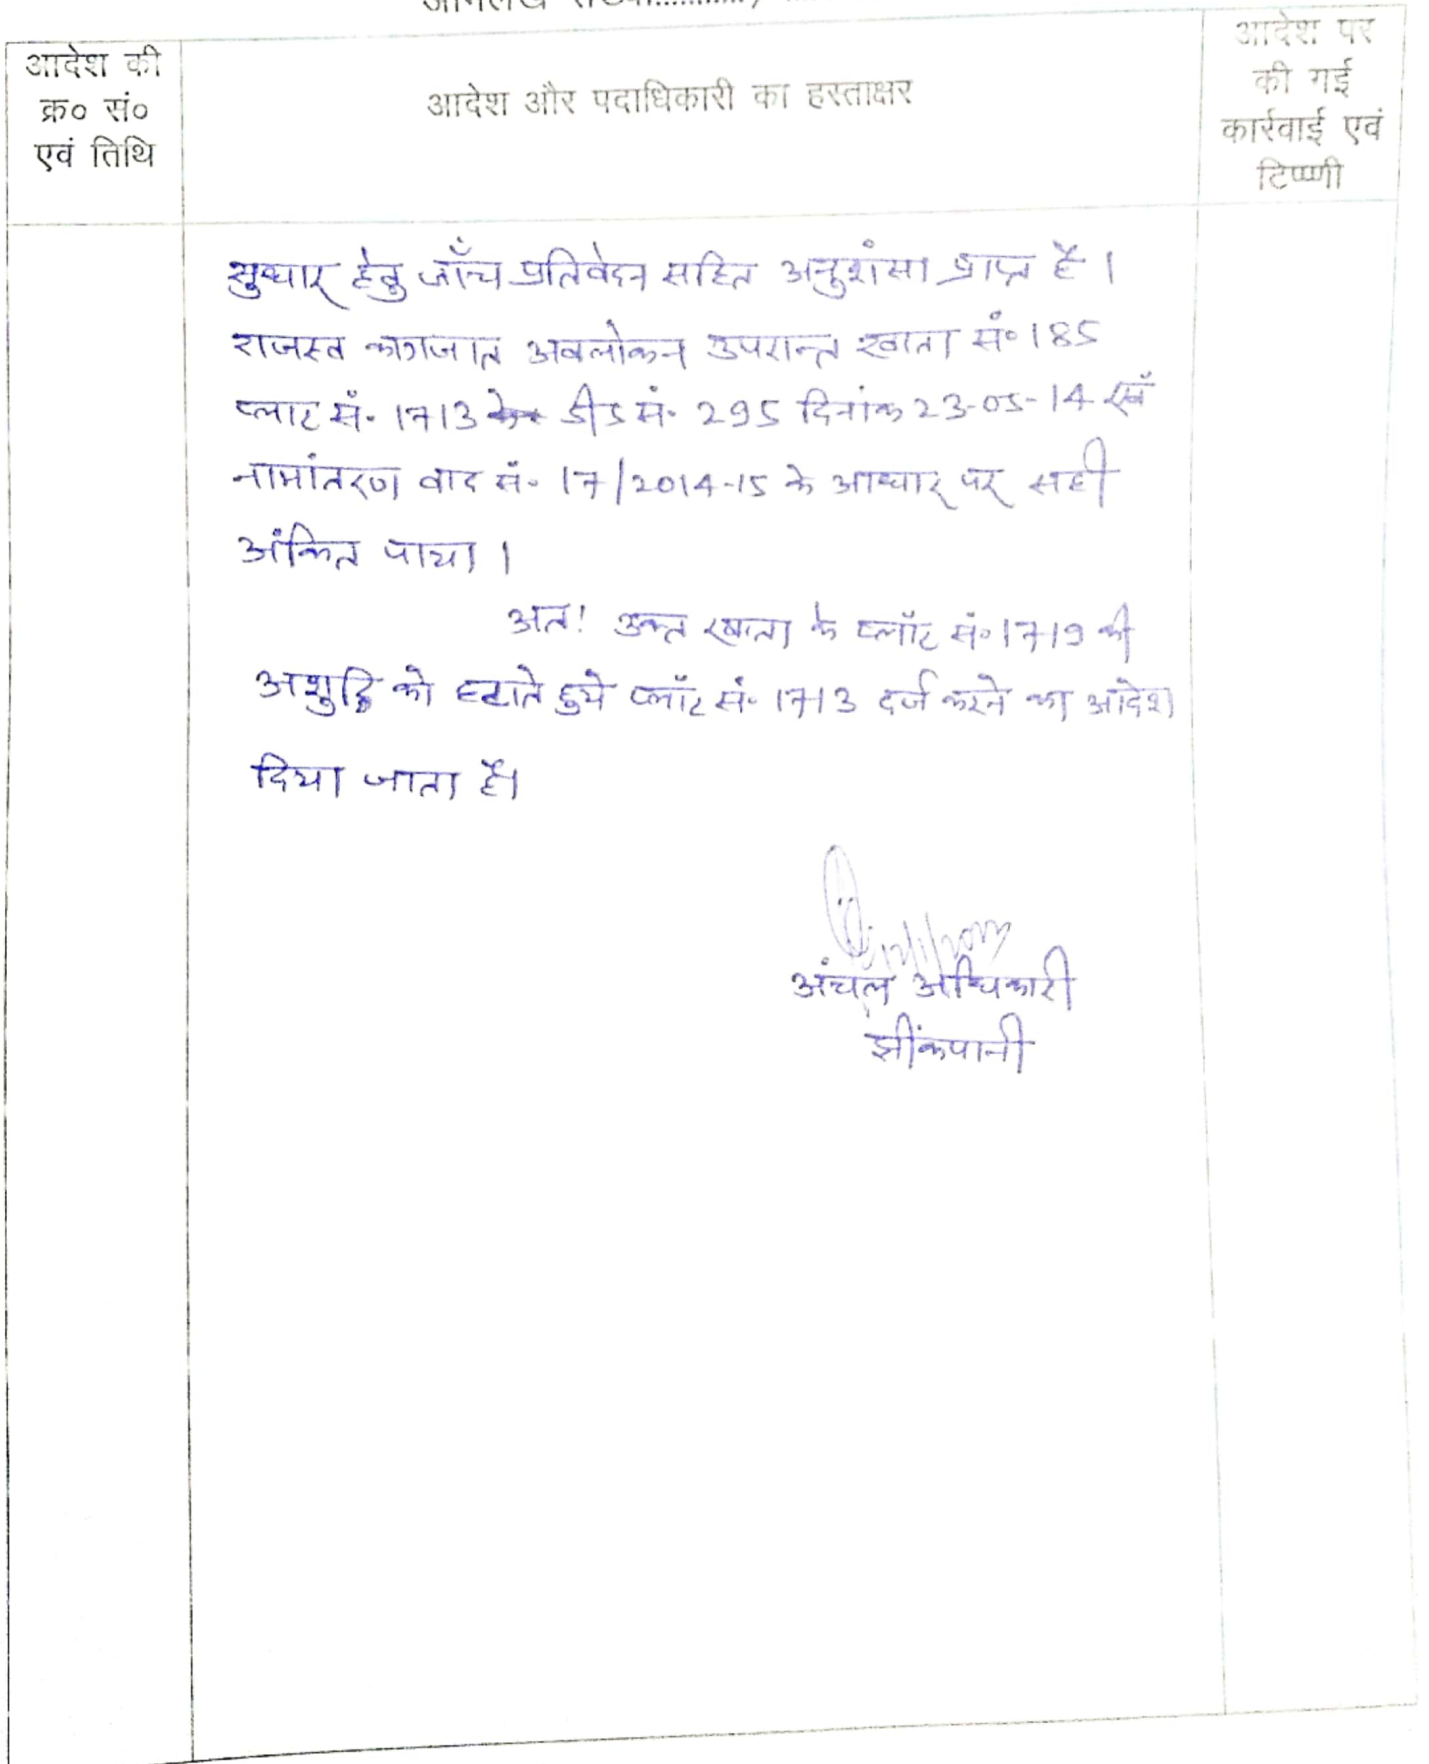 आदेश की
क्र० सं०
एवं तिथि
आदेश और पदाधिकारी का हस्ताक्षर
आदेश पर
की गई
कार्रवाई एवं
टिप्पणी
सुधार हेतु जाँच प्रतिवेदन सहित अनुशंसा प्राप्त है।
राजस्व कागजात अवलोकन उपरान्त खाता सं० 185
प्लाट सं० 1713 डीड सं० 295 दिनांक 23-05-14 एवं
नामांतरण वाद सं० 17/2014-15 के आधार पर सही
अंकित पाया।
अतः उक्त खाता के प्लॉट सं० 1719 की
अशुद्धि को हटाते हुये प्लॉट सं० 1713 दर्ज करने का आदेश
दिया जाता है।
अंचल अधिकारी
झींकपानी